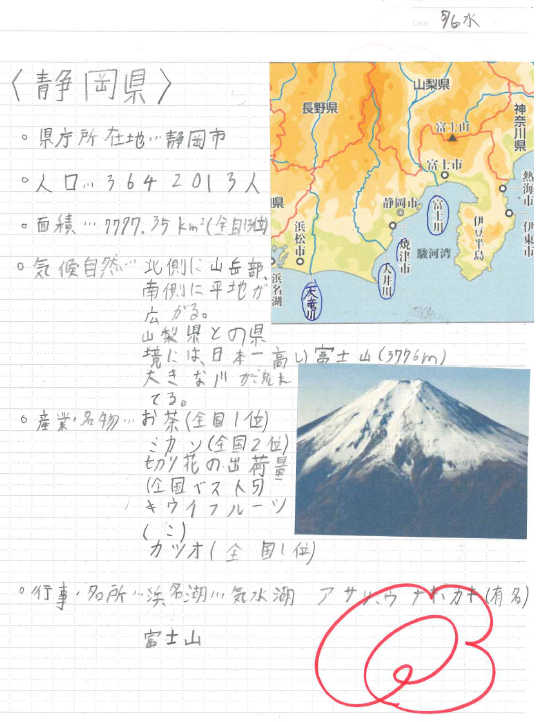 9/6水
〈静岡県〉
○県庁所在地…静岡市
○人口…3642013人
○面積…7777.35km²(全国13位)
○気候自然…北側に山岳部、
南側に平地が
広がる。
山梨県との県
境には、日本一高い富士山(3776m)
大きな川が流れ
てる。
○産業・名物…お茶(全国1位)
ミカン(全国2位)
切り花の出荷量
(全国ベスト5)
キウイフルーツ
(〃)
カツオ(全国1位)
○行事・名所…浜名湖…気水湖 アサリ、ウナギ、カキ(有名)
富士山
長野県
山梨県
神奈川県
富士山
富士市
静岡市
富士川
熱海市
浜松市
焼津市
駿河湾
伊豆半島
伊東市
大井川
浜名湖
天竜川
県